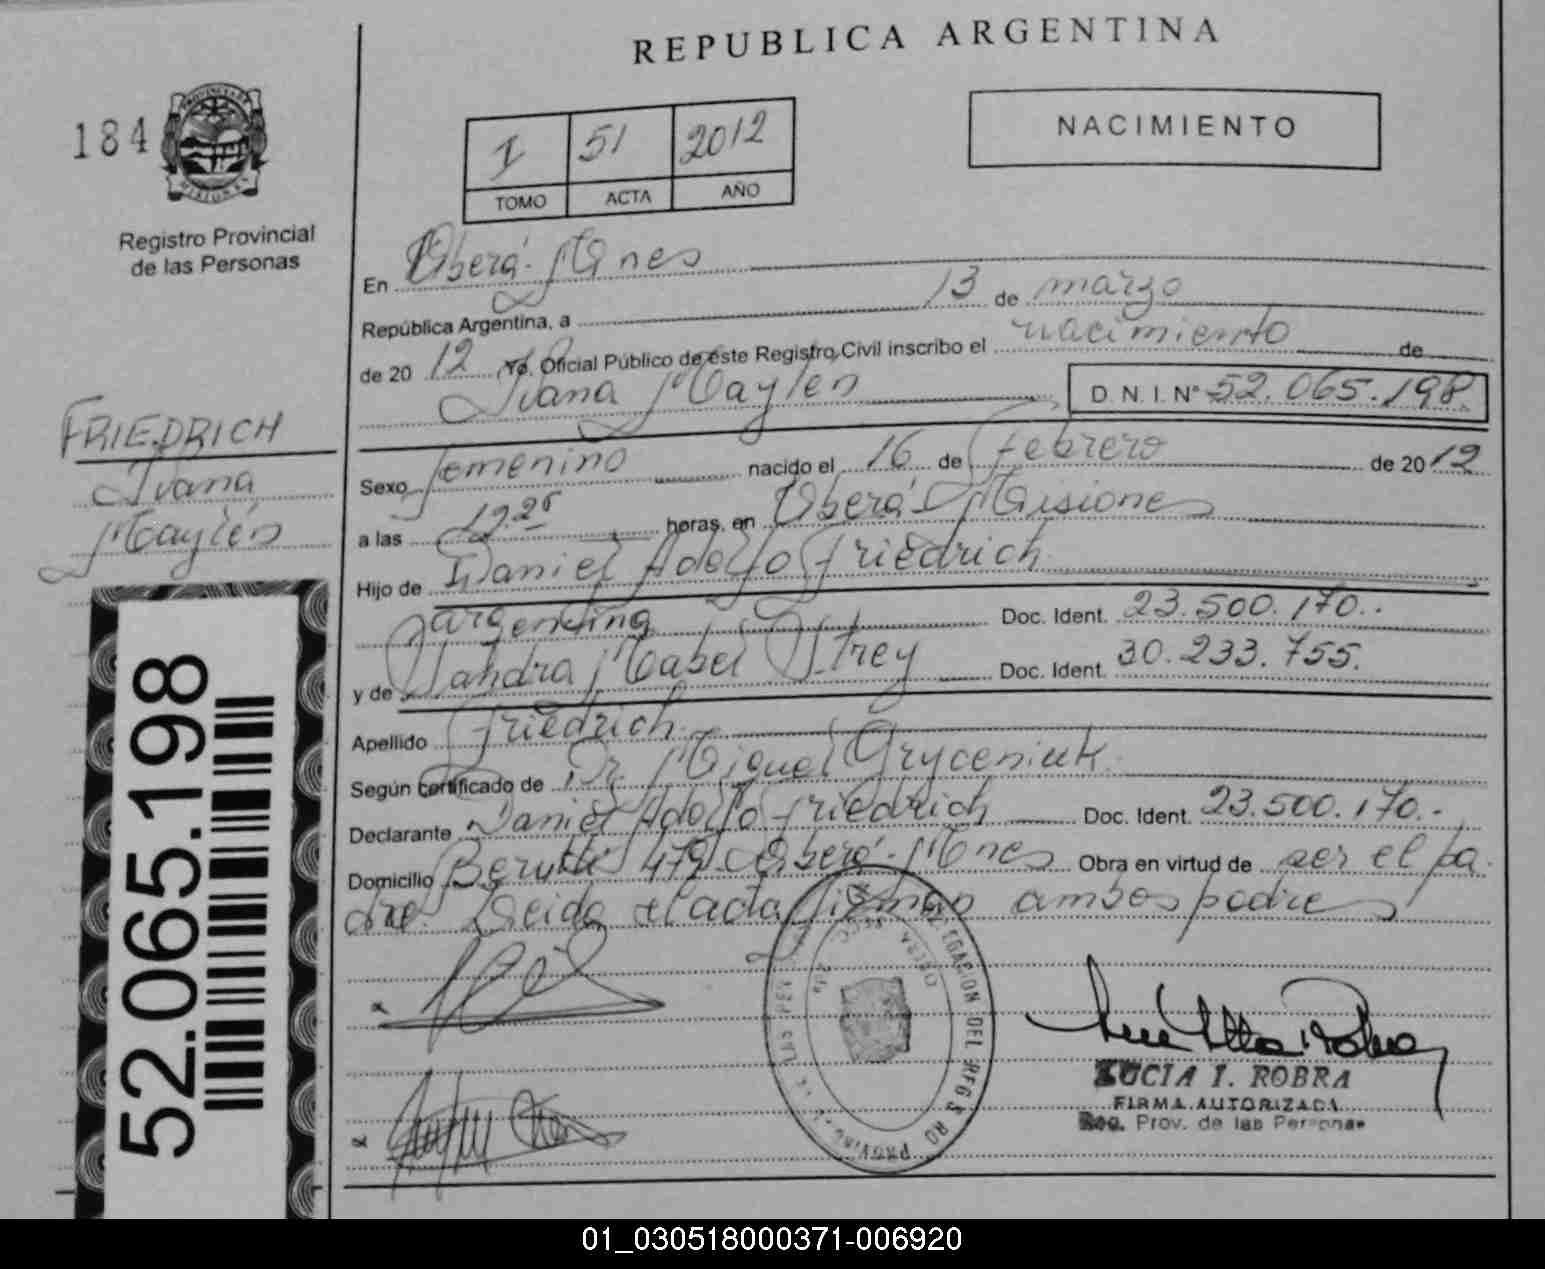 REPUBLICA ARGENTINA
184
PROVINCIA DE
MISIONES
Registro Provincial
de las Personas
I 51 2012
TOMO ACTA AÑO
NACIMIENTO
En Oberá - Mnes
República Argentina, a 13 de marzo
de 2012 Yo, Oficial Público de este Registro Civil inscribo el nacimiento de
Ivana Maylén D. N. I. N° 52.065.198
FRIEDRICH
Ivana
Maylén
Sexo femenino nacido el 16 de Febrero de 2012
a las 19.25 horas, en Oberá - Misiones
Hijo de Daniel Adolfo Friedrich
argentina Doc. Ident. 23.500.170.-
y de Sandra Mabel Strey Doc. Ident. 30.233.755.
Apellido Friedrich
Según certificado de Dr. Miguel Gryceniuk
Declarante Daniel Adolfo Friedrich Doc. Ident. 23.500.170.-
Domicilio Berutti 479 Oberá - Mnes Obra en virtud de ser el pa
dre. Leida el acta firman ambos padres
LUCIA I. ROBRA
FIRMA AUTORIZADA
Reg. Prov. de las Personas
52.065.198
01_030518000371-006920